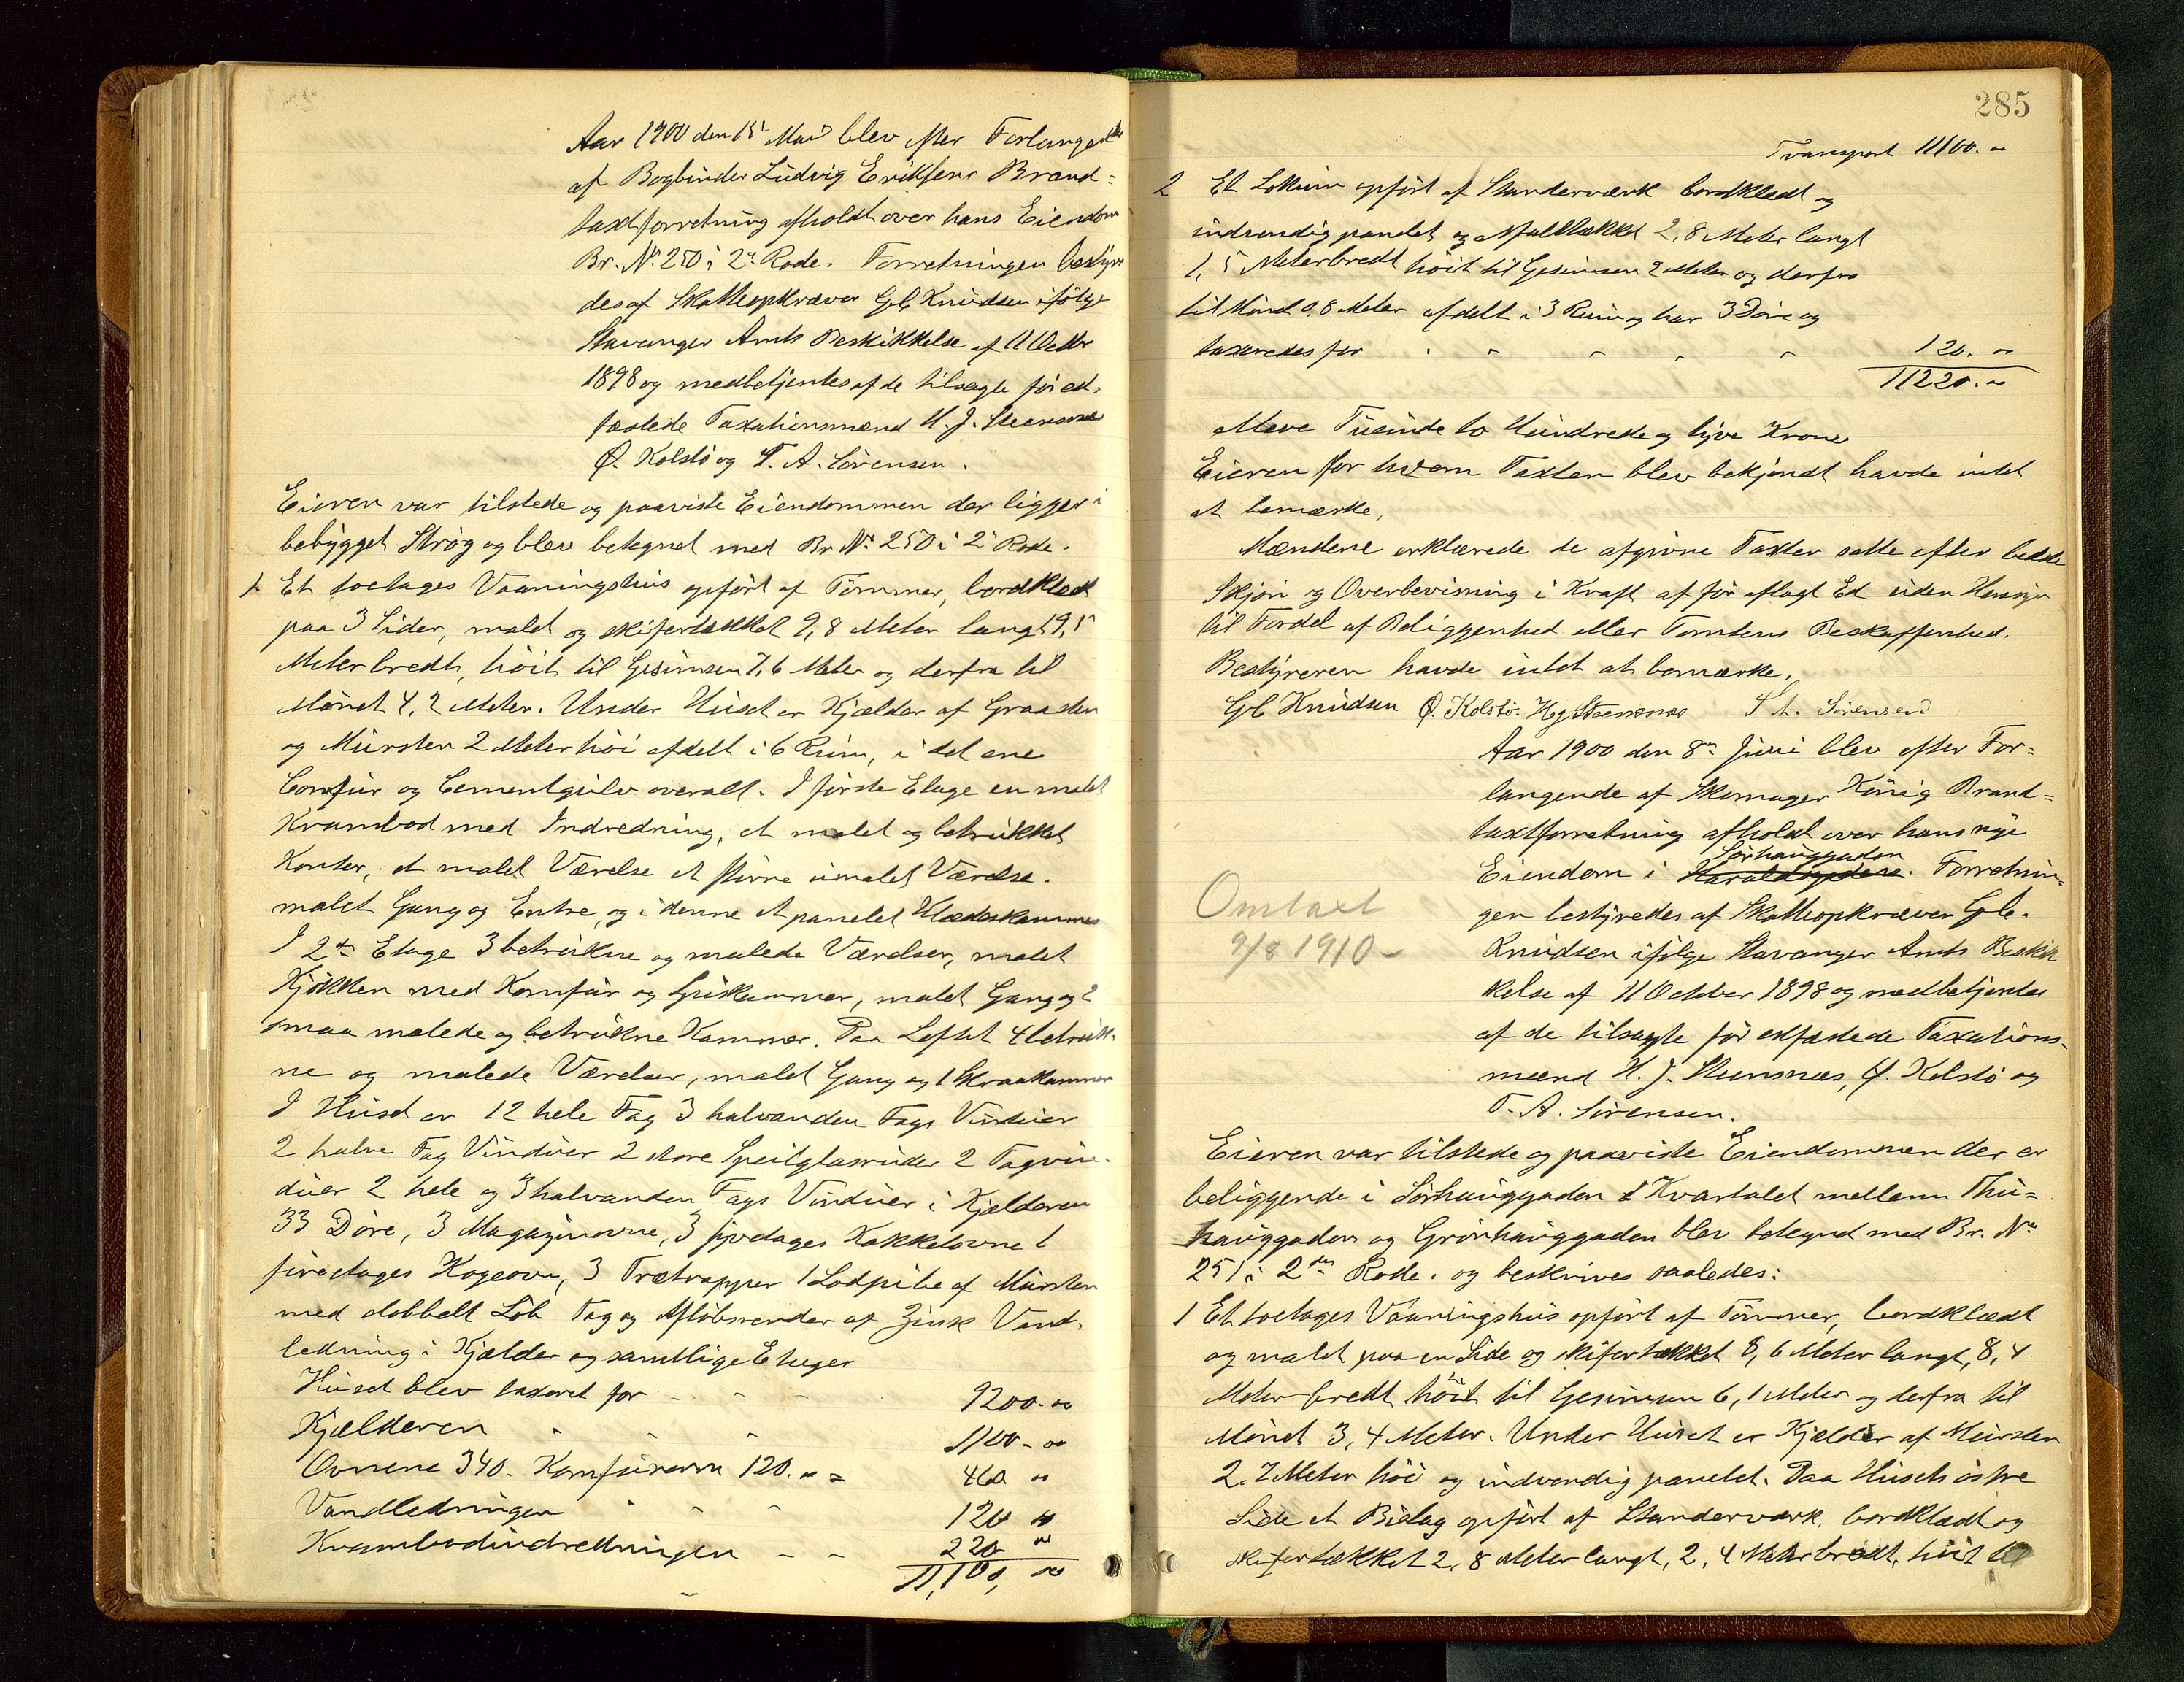 Aar 1900 den 15 Mai blev efter Forlangende
af Bogbinder Ludvig Eriksens Brand-
taxtforretning afholdt over hans Eiendom
Br. No. 250 i 2n Rode. Forretningen bestyre
des af Skatteopkræver Gb Knudsen ifølge
Stavanger Amts Beskikkelse af 11 Octbr
1898 og medbetjentes af de tilsagte før ed-
fæstede Taxationsmænd H. J. Steensnæs
O. Kolstö og T. A. Sörensen.
Eieren var tilstede og paaviste Eiendommen der ligger i
bebygget Strøg og blev betegnet med Br No 250 i 2n Rode.
1 Et toetages Vaaningshus opfört af Tömmer, bordklædt
paa 3 Sider, malet og skifertækket 9,8 Meter langt 9,5
Meter bredt, höit til Gesimsen 7,6 Meter og derfra til
Mönet 4,2 Meter. Under Huset er Kjælder af Graasten
og Mursten 2 Meter höi afdelt i 6 Rum, i det ene
Comfur og Cementgulv overalt. I förste Etage en malet
Krambod med Indredning, et malet og betrukket
Kontor, et malet Værelse et större umalet Værelse.
malet Gang og Entre, og i denne et panelet Klædeskammer
I 2den Etage 3 betrukne og malede Værelser, malet
Kjökken med Komfur og Spiskammer, malet Gang og 2
smaa malede og betrukne Kammer. Paa Loftet 4 betruk-
ne og malede Værelser, malet Gang og 1 Skraakammer
I Huset er 12 hele Fag 3 halvanden Fags Vinduer
2 halve Fag Vinduer 2 store Speilglasruder 2 Tagvin-
duer 2 hele og 3 halvanden Fags Vinduer i Kjælderen
33 Döre, 3 Magazinovne, 3 Kakkelovne 1
fireetages Kogeovn, 3 Trætrapper 1 Lodpibe af Mursten
med dobbelt Löb Tag og Aflöbsrender af Zink Vand-
ledning i Kjælder og samtlige Etager
Huset blev taxeret for - - - 9200.00
Kjælderen " - - 1100.00
Ovnene 340. Komfurerne 120.00 = 460 00
Vandledningen " " " 120 00
Krambodindredningen - - 220 00
11,100, 00
285
Transport 11100.00
2 Et Lokum opfört af Standerværk bordklædt og
indvendig panelet og 2,8 Meter langt
1,5 Meter bredt höit til Gesimsen 2 Meter og derfra
til Mönet 0,8 Meter afdelt i 3 Rum og har 3 Döre og
taxeredes for - - - - - 120.00
11220.00
Elleve Tusinde to Hundrede og tyve Kroner
Eieren for hvem Taxten blev bekjendt havde intet
at bemærke,
Mændene erklærede de afgivne Taxter satte efter bedste
Skjön og Overbevisning i Kraft af för aflagt Ed uden Hensyn
til Fordel af Beliggenhed eller Tomtens Beskaffenhed.
Bestyreren havde intet at bemærke.
Gb Knudsen O. Kolstö. H J Steensnæs T A. Sörensen
Aar 1900 den 8de Juni blev efter For-
langende af Skomager König Brand-
taxtforretning afholdt over hans nye
Sørhauggaden
Eiendom i Haraldsgaden. Forretnin-
gen bestyredes af Skatteopkræver Gb.
Knudsen ifølge Stavanger Amts Beskik
kelse af 11 October 1898 og medbetjentes
af de tilsagte för edfæstede Taxations-
mænd H. J. Steensnæs, O. Kolstö og
T. A. Sörensen.
Omtaxt
9/8 1910 -
Eieren var tilstede og paaviste Eiendommen der er
beliggende i Sörhauggaden i Kvartalet mellem Thu-
hauggaden og Grönhauggaden blev betegnet med Br. No
251 i 2den Rode. og beskrives saaledes:
1 Et toetages Vaaningshus opfört af Tömmer, bordklædt
og malet paa en Side og skifertækket 8,6 Meter langt, 8,4
Meter bredt höit til Gesimsen 6,1 Meter og derfra til
Mönet 3,4 Meter. Under Huset er Kjælder af Mursten
2.7 Meter höi og indvendig panelet. Paa Husets östre
Side et Bislag opfört af Standerværk, bordklædt og
skifertækket 2,8 Meter langt, 2,4 Meter bredt, höit til